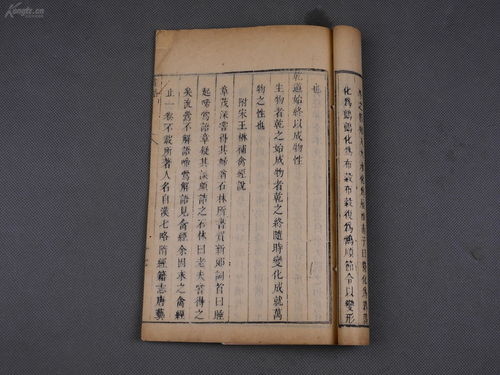 化為鸇鸇化為布穀布穀復為鷂順節令以變形
也
乾道始終以成物性
生物者乾之始成物者乾之終隨時變化成就萬
物之性也
附宋王楙補禽經說
章茂深嘗得其婦翁石林所書賀新郎詞首曰睡
起啼鶯語章疑其誤頗詰之石林曰老夫嘗得之
矣流鶯不解語啼鶯解語見禽經余因求之禽經
止一卷不載所著人名自漢七略隋經籍志唐藝
Kongfz.cn